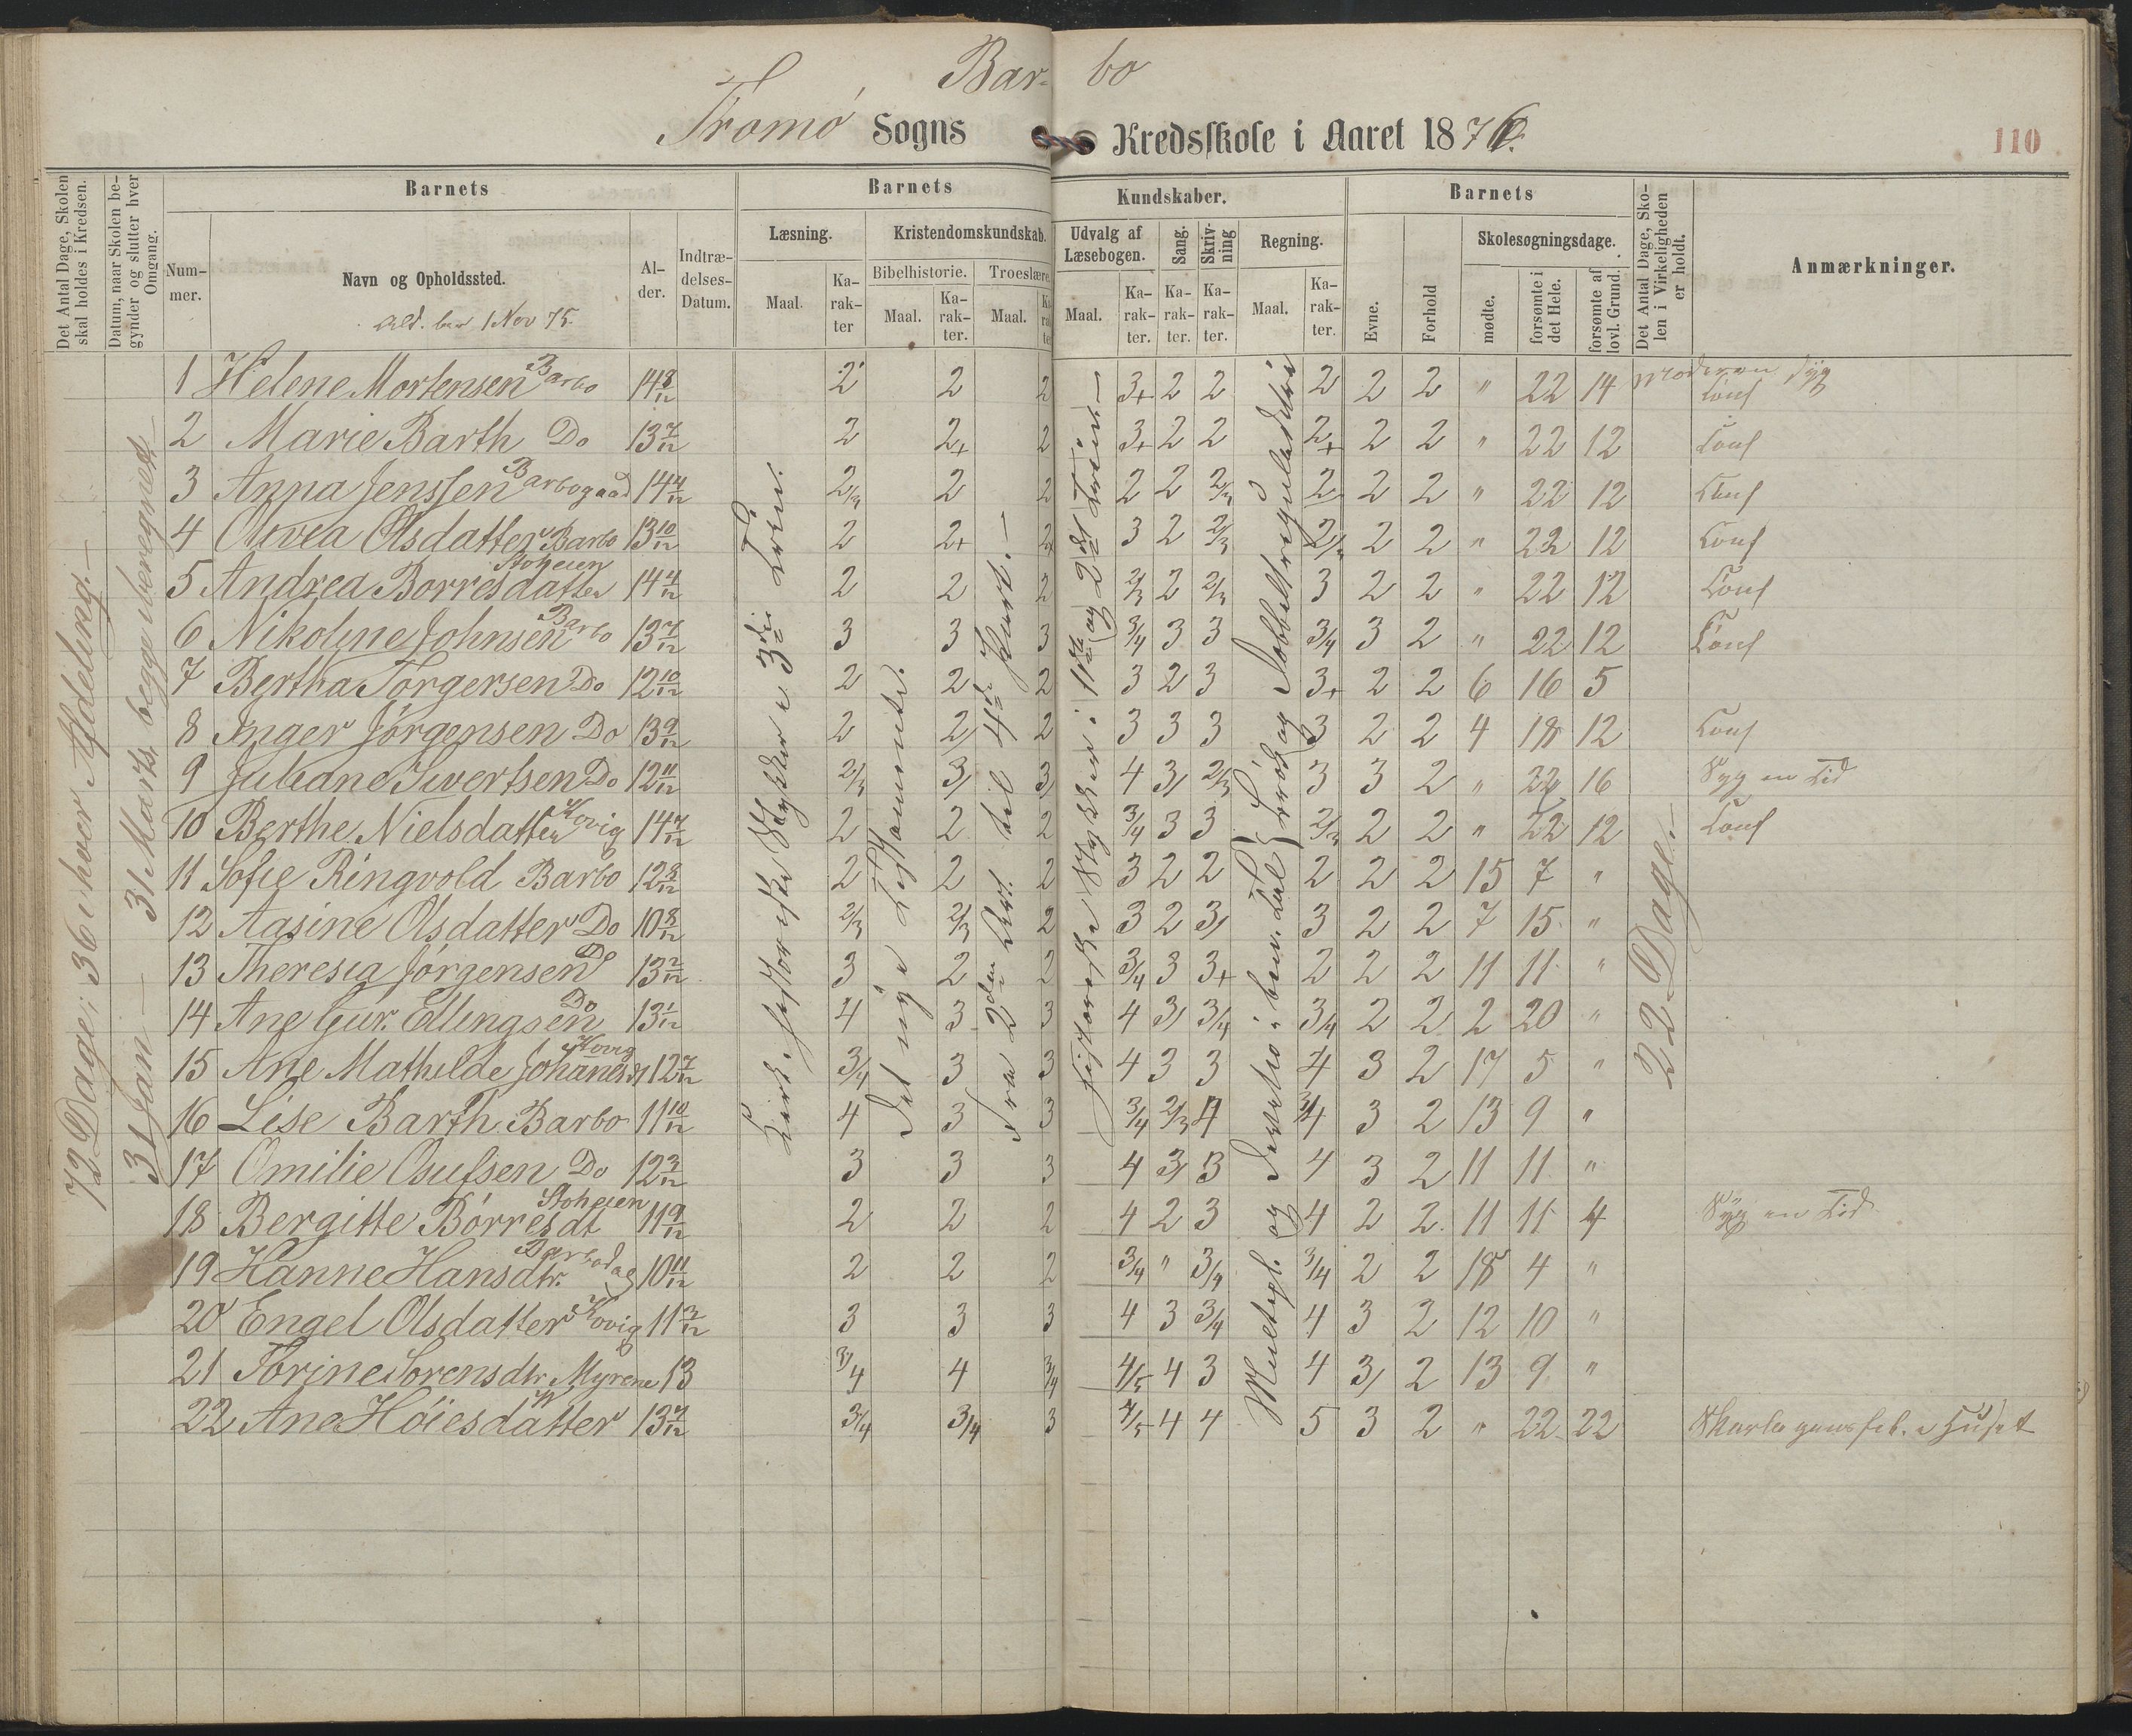 Bar- bo
Tromø Sogns Kredsskole i Aaret 1876.
110
Det Antal Dage, Skolen skal holdes i Kredsen.
Datum, naar Skolen begynder og slutter hver Omgang.
Barnets
Nummer.
Navn og Opholdssted.
Ald. ber 1 Nov 75.
Alder.
Indtrædelses-Datum.
Barnets Kundskaber.
Læsning.
Maal.
Karakter
Kristendomskundskab.
Bibelhistorie.
Maal.
Karakter.
Troeslære.
Maal.
Karakter
Udvalg af Læsebogen.
Maal.
Karakter.
Sang.
Karakter.
Skrivning
Karakter.
Regning.
Maal.
Karakter.
Barnets
Evne.
Forhold
Skolesøgningsdage.
mødte.
forsømte i det Hele.
forsømte af lovl. Grund.
Det Antal Dage, Skolen i Virkeligheden er holdt.
Anmærkninger.
72 Dage; 36 i hver Afdeling.—
31 Jan — 31 Marts, begge iberegnet—
3die Trin.
Det nye Testamente.
Fra 2den til 4de Part.—
1ste og 2det Trin—
22 Dage.—
1 Helene Mortensen Barbo 14 8/12 2 2 2 3+ 2 2 2 2 2 " 22 14 Moderen syg Conf
2 Marie Barth Do 13 7/12 2 2+ 2 3+ 2 2 2+ 2 2 " 22 12 Conf
3 Anna Jenssen Barbogaard 14 4/12 2/3 2 2 2 2 2/3 2 2 2 " 22 12 Conf
4 Olivea Olsdatter Barbo 13 10/12 2 2+ 2+ 3 2 2/3 2/3 2 2 " 22 12 Conf
5 Andrea Borresdatter Stoheien 14 4/12 2 2 2 2/3 2 2/3 3 2 2 " 22 12 Conf
6 Nikoline Johnsen Barbo 13 7/12 3 3 3 3/4 3 3 3/4 3 2 " 22 12 Conf
7 Bertha Torgersen Do 12 10/12 2 2 2 3 2 3 3+ 2 2 6 16 5
8 Inger Jörgensen Do 13 9/12 2 2 2 3 3 3 3 2 2 4 18 12 Conf
9 Juliane Ivertsen Do 12 11/12 2/3 3 3 4 3 2/3 3 3 2 " 22 16 Syg en Tid
10 Berthe Nielsdatter Kovig 14 7/12 2 2 2 3/4 3 3 2/3 2 2 " 22 12 Conf
11 Sofie Ringvold Barbo 12 8/12 2 2 2 3 2 2 2 2 2 15 7 "
12 Aasine Olsdatter Do 10 8/12 2/3 2/3 2 3 2 3 3 2 2 7 15 "
13 Theresia Jörgensen Do 13 2/12 3 2 2 3/4 3 3+ 2 2 2 11 11 "
14 Ane Gur. Ellingsen Do 13 1/12 4 3 3 4 3 3/4 3/4 2 2 2 20 "
15 Ane Mathilde Kovig 12 7/12 3/4 3 3 4 3 3 4 3 2 17 5 "
16 Lise Barth Barbo 11 10/12 4 3 3 3/4 2/3 4 3/4 3 2 13 9 "
17 Omilie Osufsen Do 12 3/12 3 3 3 4 3 3 4 3 2 11 11 "
18 Bergitte Börresdt Stoheien 11 9/12 2 2 2 4 2 3 4 2 2 11 11 4 Syg en Tid
19 Hanne Hansdtr. 10 11/12 2 2 2 3/4 " 3/4 3/4 2 2 18 4 "
20 Engel Olsdatter Kovig 11 3/12 3 3 3 4 3 3/4 4 3 2 12 10 "
21 Torine Sorensdtr Myrene 13 3/4 4 3/4 4/5 4 3 4 3 2 13 9 "
22 Ane Höiesdatter 13 7/12 3/4 3/4 3 4/5 4 4 5 3 2 " 22 22 Skarlagensfeb. i Huset